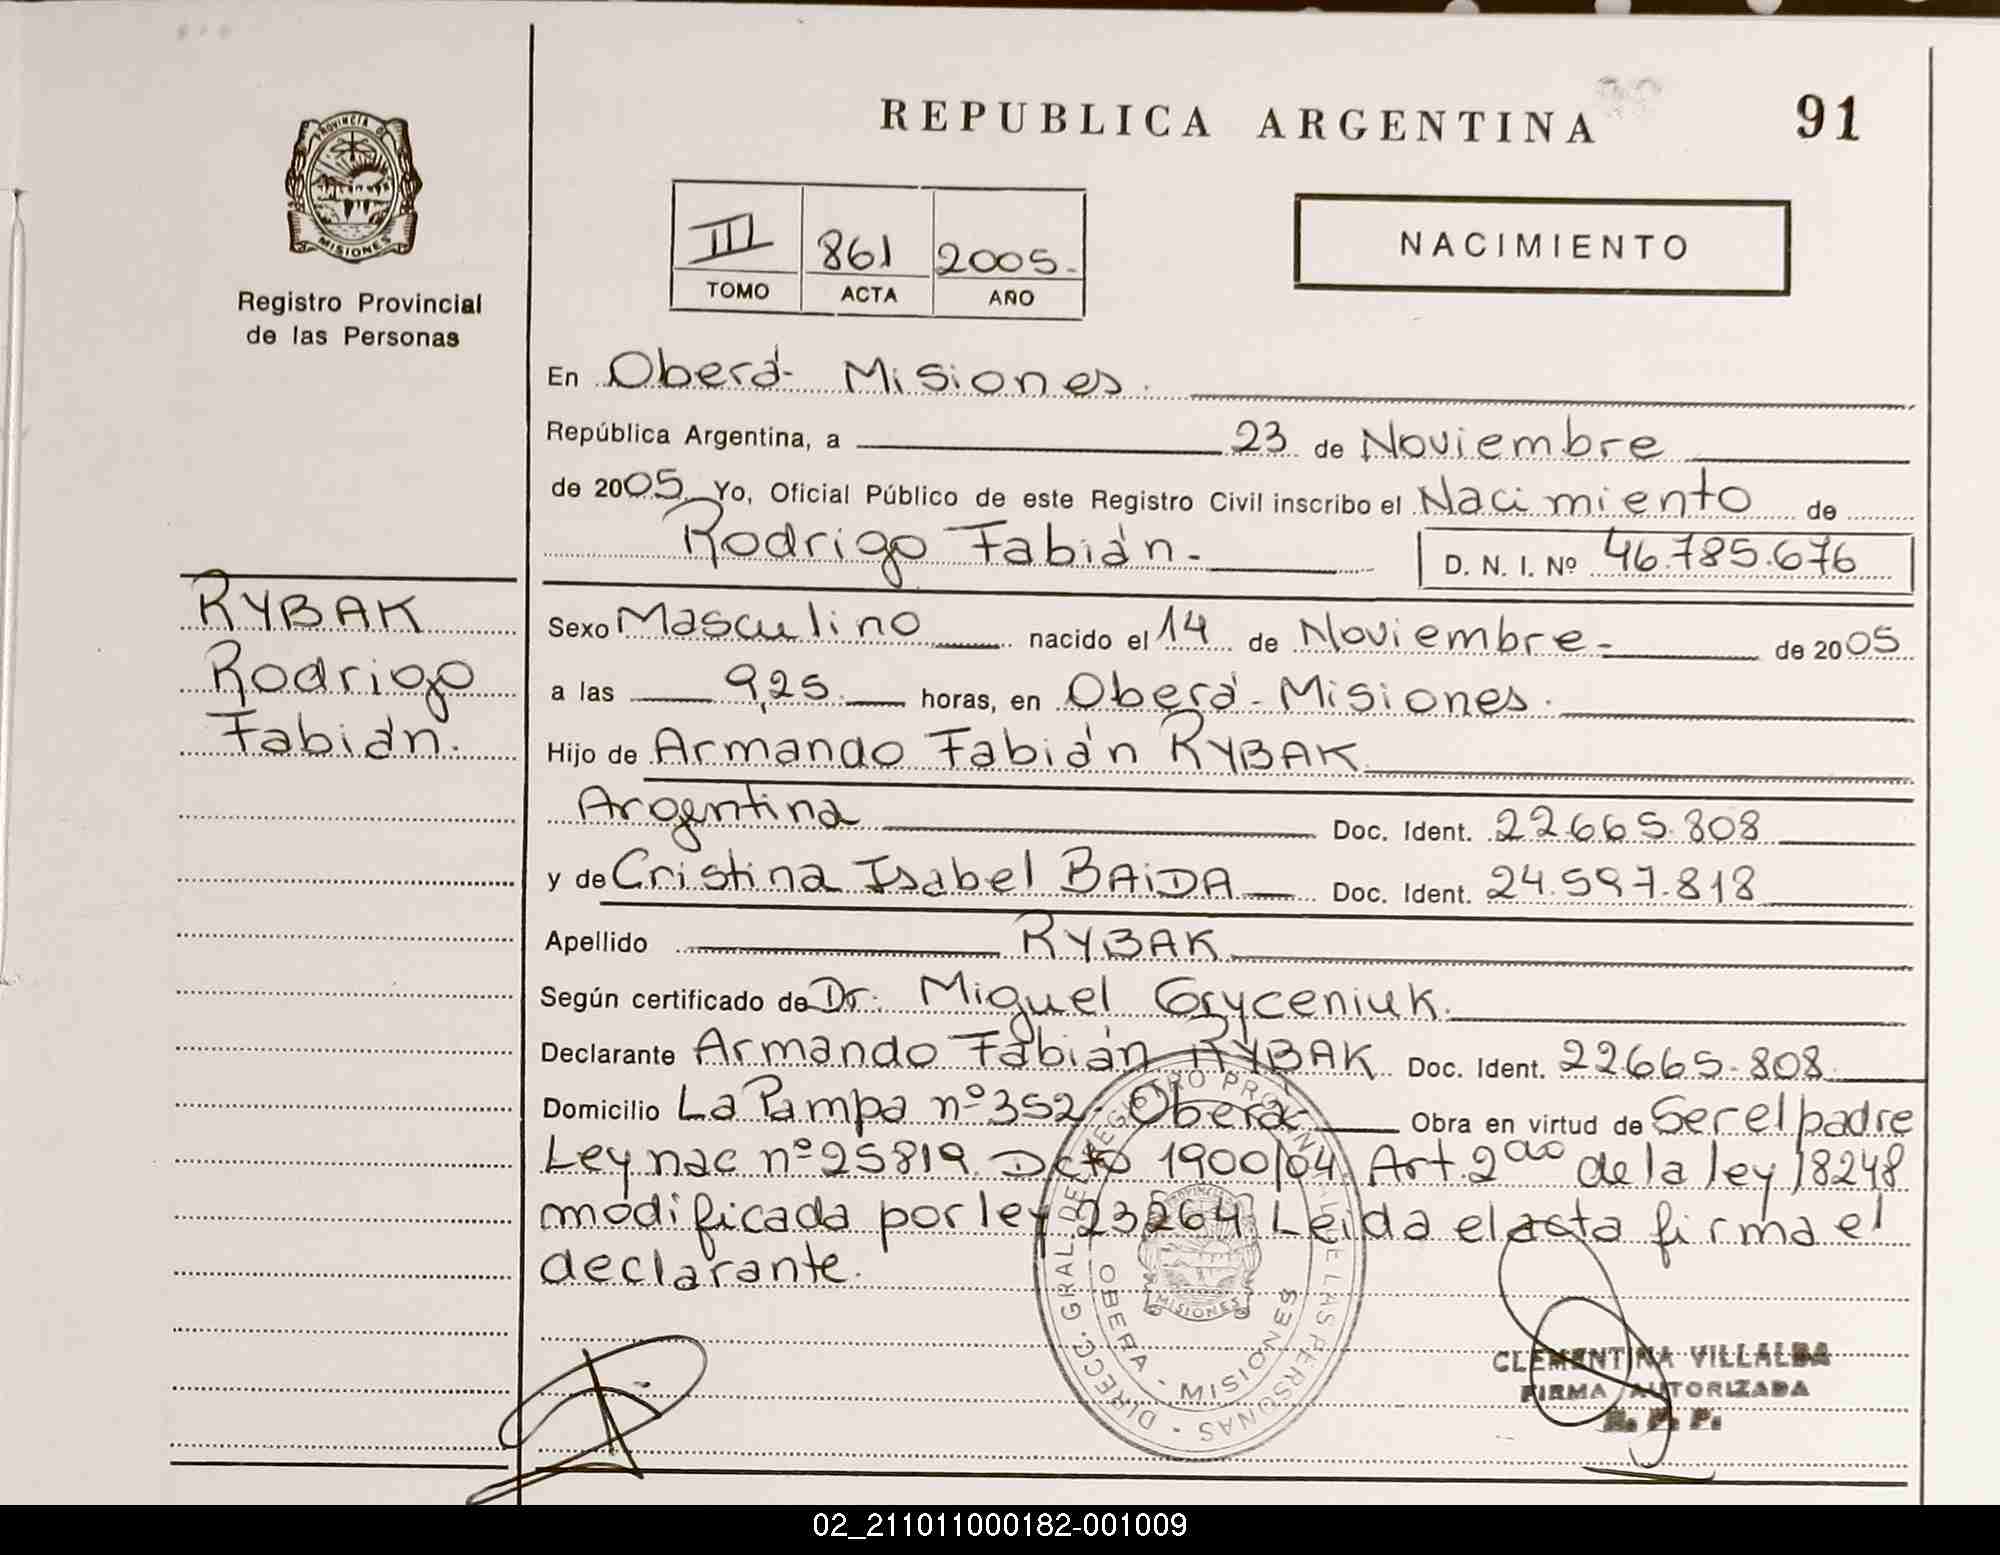 REPUBLICA ARGENTINA
91
PROVINCIA DE
MISIONES
Registro Provincial
de las Personas
III 861 2005.
TOMO ACTA AÑO
NACIMIENTO
En Oberá- Misiones.
República Argentina, a 23 de Noviembre
de 2005. Yo, Oficial Público de este Registro Civil inscribo el Nacimiento de
Rodrigo Fabián.-
D. N. I. Nº 46.785.676
RYBAK
Rodrigo
Fabián.
Sexo Masculino nacido el 14 de Noviembre.- de 2005
a las 9,25. horas, en Oberá- Misiones.
Hijo de Armando Fabián RYBAK
Argentina Doc. Ident. 22.665.808
y de Cristina Isabel BAiDA Doc. Ident. 24.597.818
Apellido RYBAK
Según certificado de Dr. Miguel Gryceniuk.
Declarante Armando Fabián RYBAK Doc. Ident. 22.665.808
Domicilio La Pampa nº 352. Oberá Obra en virtud de Ser el padre
Ley nac nº 25819. Dcto 1900/04. Art. 2do de la ley 18248
modificada por ley 23264. Leida el acta firma el
declarante.
DIRECC. GRAL. DEL REGISTRO PROVINCIAL DE LAS PERSONAS
OBERA - MISIONES
MISIONES
CLEMENTINA VILLALBA
FIRMA AUTORIZADA
R. P. P.
02_211011000182-001009